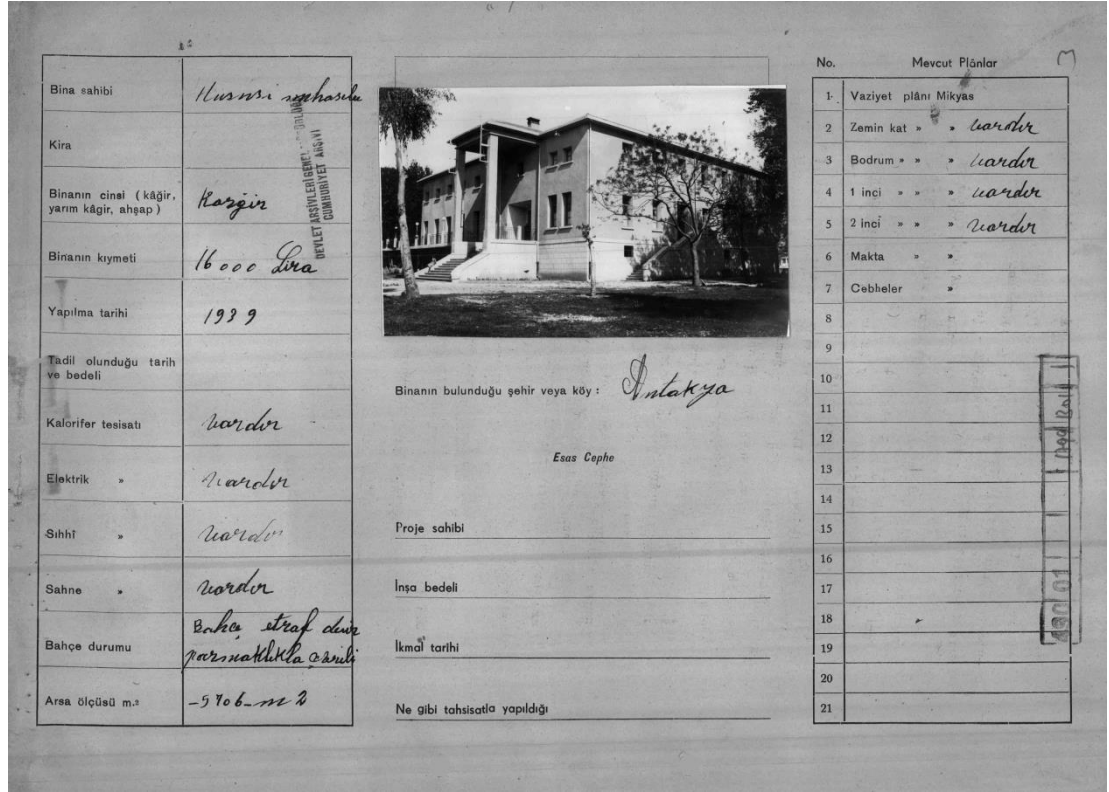 Bina sahibi Hususi
Kira
Binanın cinsi ( kâğir,
yarım kâgir, ahşap ) Kargir
Binanın kıymeti 16 000 Lira
Yapılma tarihi 1939
Tadil olunduğu tarih
ve bedeli
Kalorifer tesisatı vardır
Elektrik » vardır
Sıhhî » vardır
Sahne » vardır
Bahçe durumu Bahçe etraf demir
parmaklıkla
Arsa ölçüsü m.² -5706- m2
DEVLET ARŞİVLERİ GENEL
CUMHURİYET ARŞİVİ
Binanın bulunduğu şehir veya köy : Antakya
Esas Cephe
Proje sahibi
İnşa bedeli
İkmal tarihi
Ne gibi tahsisatla yapıldığı
3
No. Mevcut Plânlar
1 Vaziyet plânı Mikyas
2 Zemin kat » » vardır
3 Bodrum » » » vardır
4 1 inci » » » vardır
5 2 inci » » » vardır
6 Makta » »
7 Cebheler »
8
9
10
11
12
13
14
15
16
17
18
19
20
21